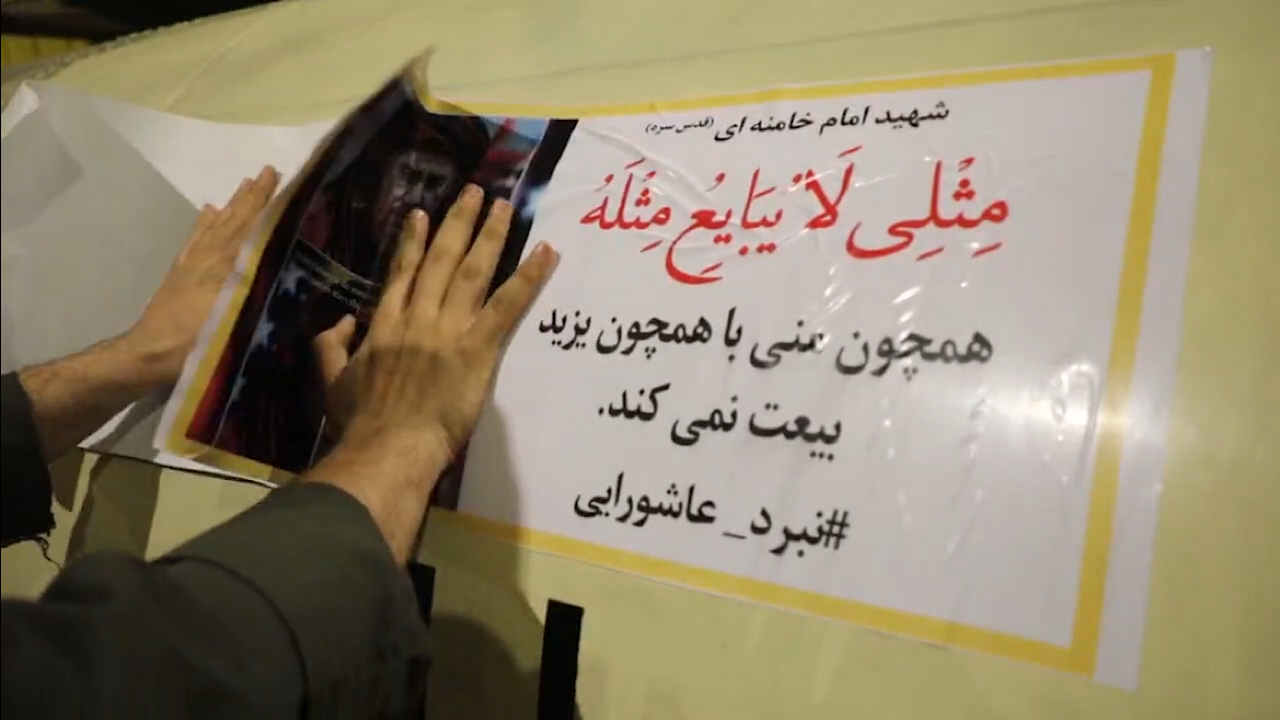 شهید امام خامنه ای (قدس سره)
مِثْلِی لَا یُبَایِعِ مِثْلَهُ
همچون منی با همچون یزید
بیعت نمی کند.
#نبرد_عاشورایی